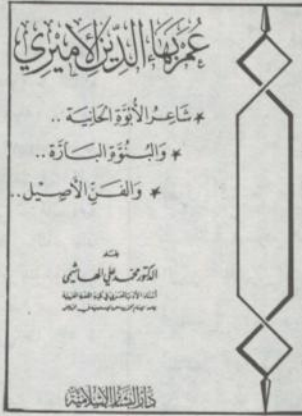 عُمَر بَهَاء الدِّين الأَمِيْرِي
* شَاعِرُ الأُبُوَّةِ الحَانِيَة ..
* وَالبُنُوَّةِ البَارَّة ..
* وَالفَنِّ الأَصِيْل ..
بقلم
الدكتور محمد علي الهاشمي
دَارُ البَشَائِرِ الإِسْلَامِيَّة